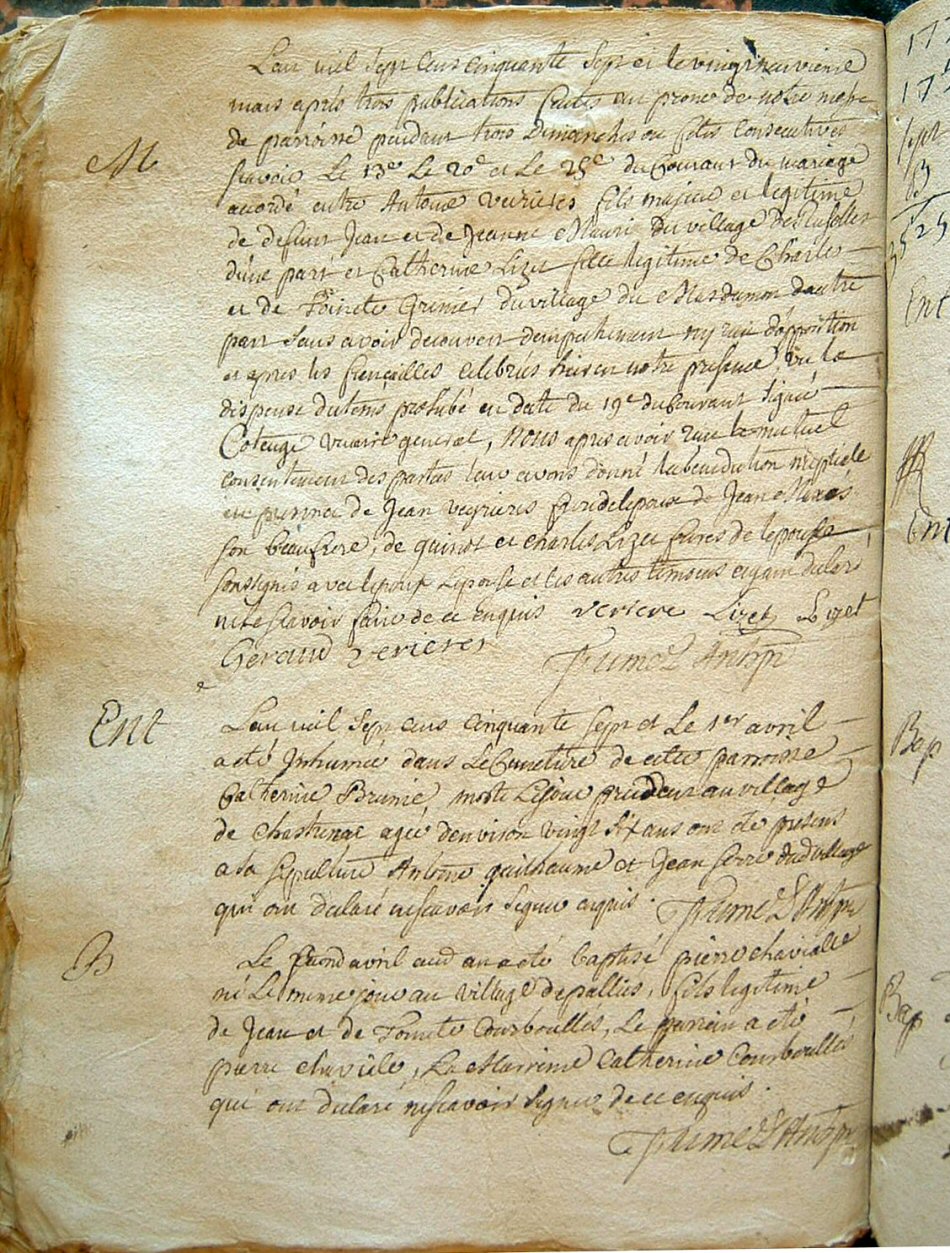 L'an mil sept cens cinquante sept et le vingt neuvieme
mars après trois publications faites au prone de notre messe
de parroisse pendant trois dimanches ou fetes consecutives
M
scavoir Le 13e Le 20e et Le 25e du Courant du mariage
accordé entre Antoine veirieres fils majeur et legitime
de defunt Jean et de Jeanne Mauri du village
d'une part et Catherine Lizet fille legitime de Charles
et de Toinete Grenier du village du d'autre
part sans avoir decouvert d'empechement ny d'opposition
et apres les fiençailles celebrées hier en notre presence vu la
dispense du tems prohibé en date du 19e du Courant signée
vicaire general, Nous apres avoir le mutuel
consentement des parties leur avons donné la benediction nuptiale
en presence de Jean veyrieres de Jean
son beaufrere, de guinot et charles Lizet freres de lepouse
soussignés avec lepoux Lepouse et les autres temoins ayant declaré
ne scavoir faire de ce enquis veriere Lizet Lizet
Geraud verieres
Ent
L'an mil sept cens cinquante sept et Le 1er avril
a été Inhumée dans Le Cimetiere de cette parroisse
Catherine Brunie, morte Lejour precedent au village
de Chastrenac agée denviron vingt six ans ont été presens
a la sepulture Antoine guilhaume et Jean serre dud village
qui ont declaré nescavoir signer enquis.
B
Le avril aud an a été baptisé pierre chaviale
né Le meme jour au village de pallies, fils legitime
de Jean et de Toinete Courboulles, Le parrein a été
pierre chaviale, La Marreine Catherine Courboulles
qui ont declaré nescavoir signer de ce enquis.
Ent
Bap
Bap